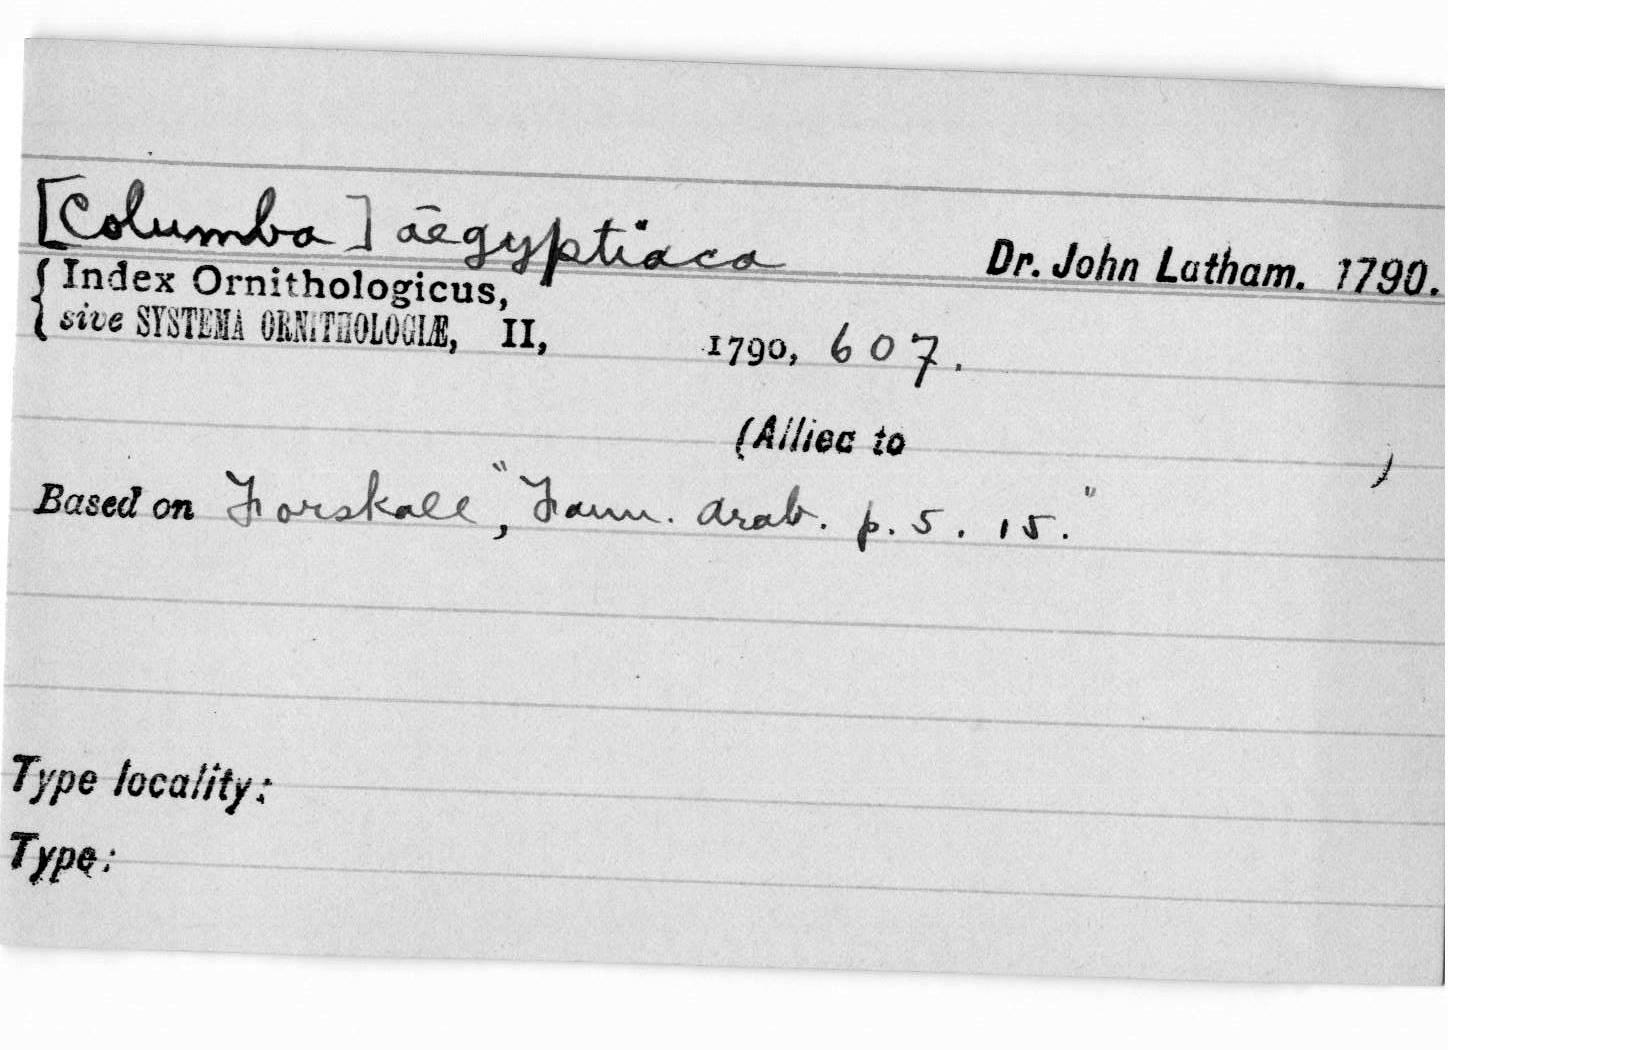 [Columba] aegyptiaca Dr. John Latham. 1790.
{ Index Ornithologicus,
sive SYSTEMA ORNITHOLOGIÆ, II, 1790, 607.
(Allied to )
Based on Forskall, "Faun. Arab. p. 5. 15."
Type locality:
Type: